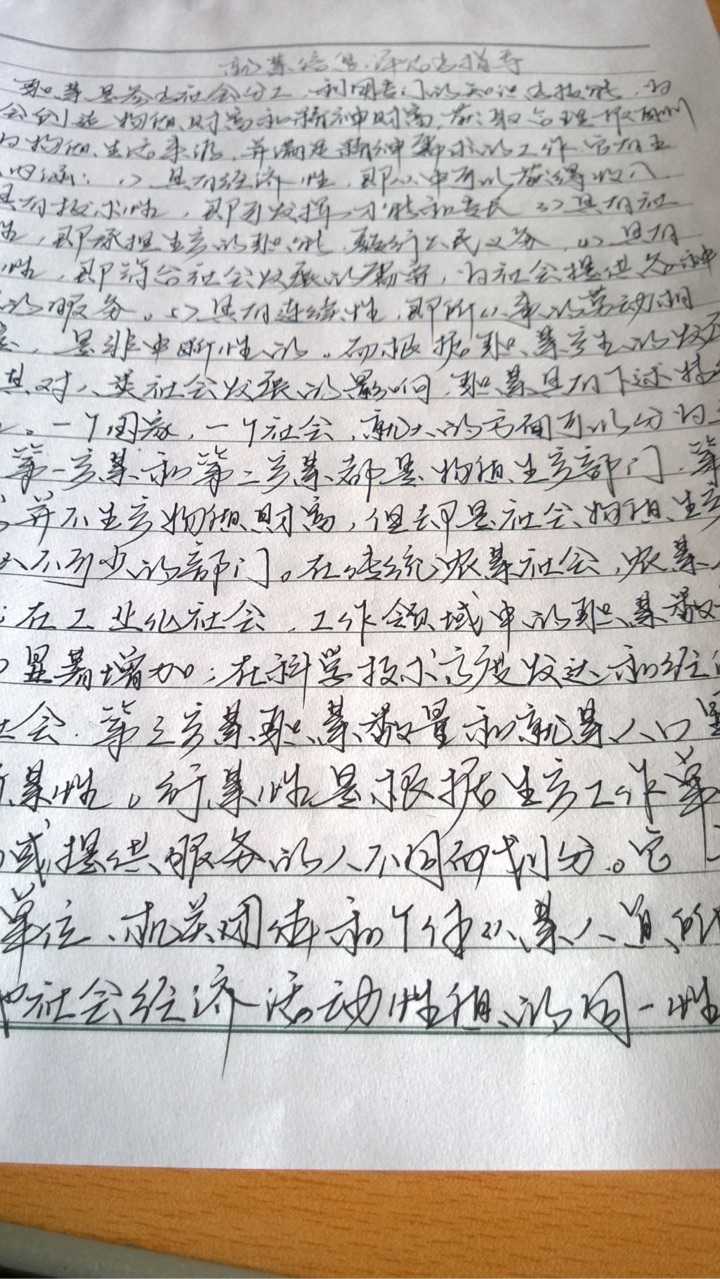 就业信息 指导
职业是参与社会分工,利用专门的知识与技能,为
会创造物质财富和精神财富,获取合理报酬
为物质生活来源,并满足精神需求的工作 它有五
内涵:(1)具有经济性,即从中可以获得收入
具有技术性,即可发挥才能和专长 (3)具有社
性,即承担生产的职能,履行公民义务,(4)具有
性,即符合社会发展的需要,为社会提供各种
的服务。(5)具有连续性,即所从事的劳动相
是非中断性的。而根据职业产生的发展
其对人类社会发展的影响,职业具有下述特
。一个国家,一个社会,就大的方面可以分为
第一产业和第二产业都是物质生产部门,第
并不生产物质财富,但却是社会物质生产
不可少的部门。在传统农业社会,农业人
在工业化社会,工作领域中的职业数
显著增加;在科学技术高度发达和经济
社会,第三产业职业数量和就业人口显
行业性。行业性是根据生产工作单
或提供服务的人不同而划分。它
单位、机关团体和个体从业人员的
社会经济活动性质的同一性